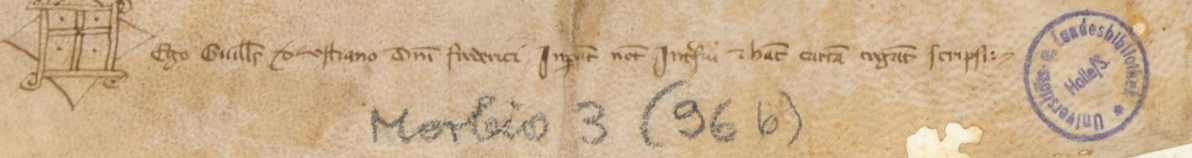 Ego Guill's domini Frederici Inpat not Interfui & hac carta rogat scripsi
Morbio 3 (96 b)
Universitäts u. Landesbibliothek
Halle/S.